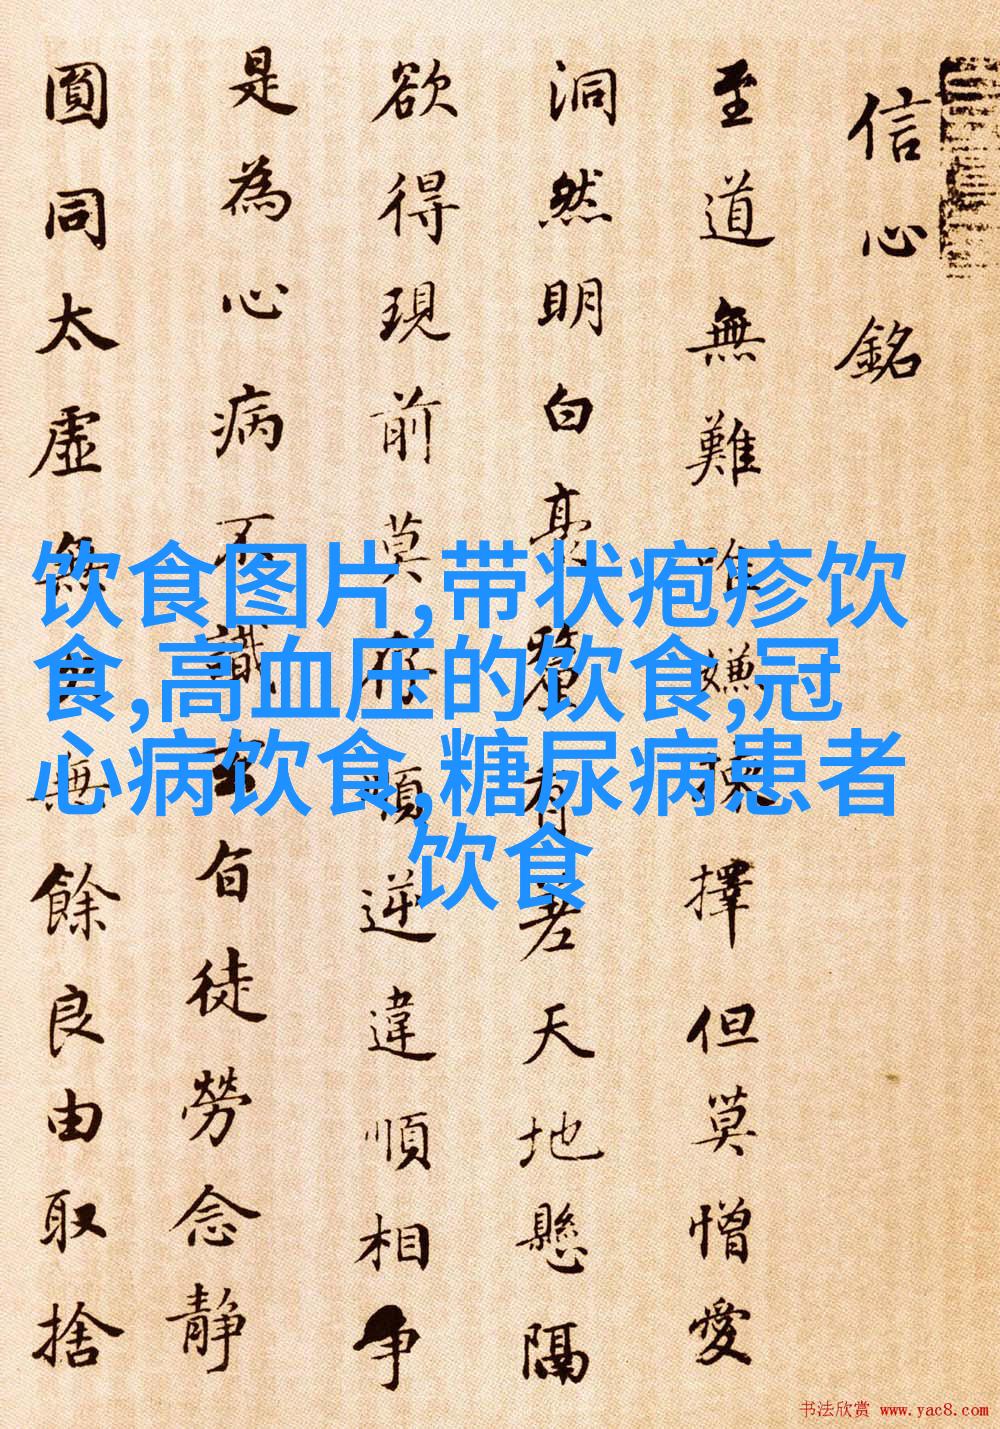 信心銘
至道無難唯嫌揀擇但莫憎愛
洞然明白毫釐有差天地懸隔
欲得現前莫存順逆違順相爭
是為心病不識玄旨徒勞念静
圓同太虛無欠無餘良由取捨
饮食图片,带状疱疹饮
食,高血压的饮食,冠
心病饮食,糖尿病患者
饮食
书法欣赏 www.yac8.com